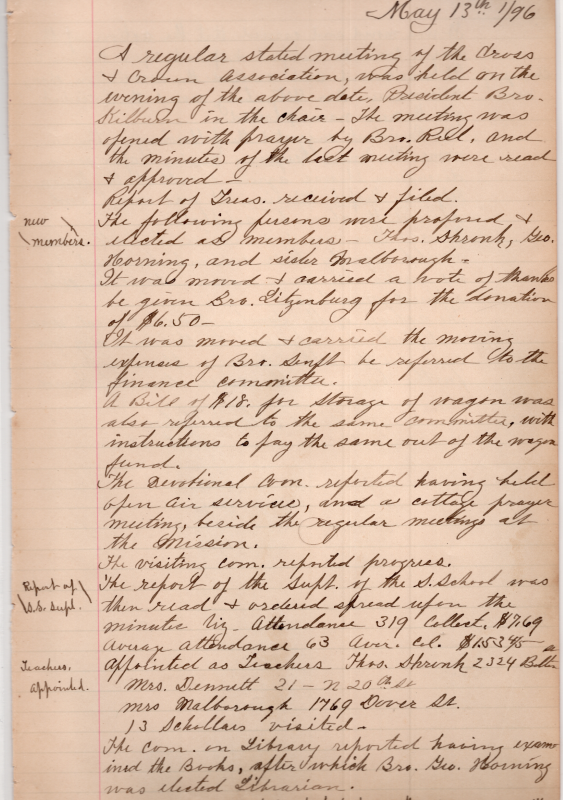 May 13th 1/96
A regular stated meeting of the Cross
& Crown Association, was held on the
evening of the above date, President Bro.
Kilburn in the chair - The meeting was
opened with prayer by Bro. Reel, and
the minutes of the last meeting were read
& approved -
Report of Treas. received & filed.
new
members.
The following persons were proposed &
elected as members - Thos. Shronk, Geo.
Horning, and sister Malborough -
It was moved & carried a vote of thanks
be given Bro. Litzenburg for the donation
of $6.50 -
It was moved & carried the moving
expenses of Bro. Senft be referred to the
finance committee.
A Bill of $18. for storage of wagon was
also referred to the same committee, with
instructions to pay the same out of the wagon
fund.
The Devotional Com. reported having held
open air service, and a cottage prayer
meeting, beside the regular meetings at
the Mission.
The visiting com. reported progress.
Report of
S.S. Supt.
The report of the Supt. of the S. School was
then read & ordered spread upon the
minutes viz - Attendance 319 Collect. $7.69
Average attendance 63 Aver. Col. $1.53 4/5
Teachers,
Appointed.
appointed as Teachers Thos. Shronk 2324
Mrs. Dennett 21 - N 20th St
Mrs Malborough 1769 Dover St.
13 Schollars visited -
The Com. on Library reported having exam
ined the Books, after which Bro. Geo. Horning
was elected Librarian.